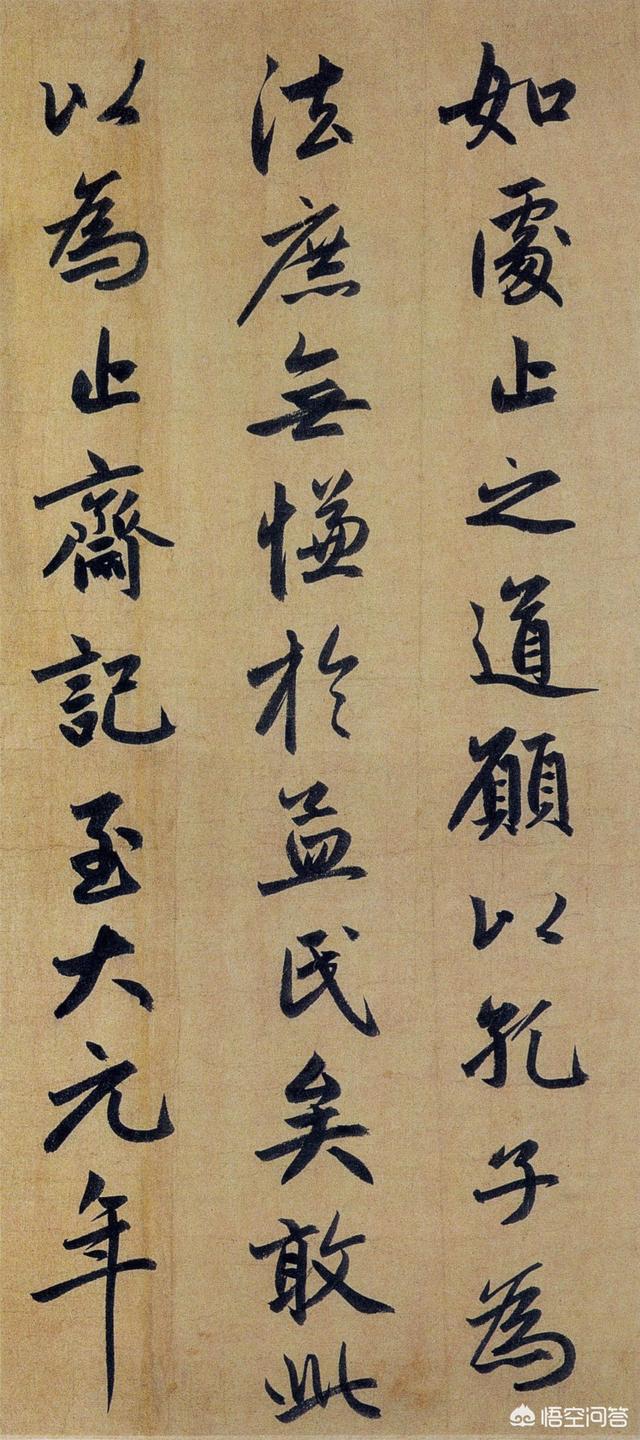 如處止之道願以孔子為
法庶無慊於益民矣敢此
以為止齋記至大元年
悟空问答